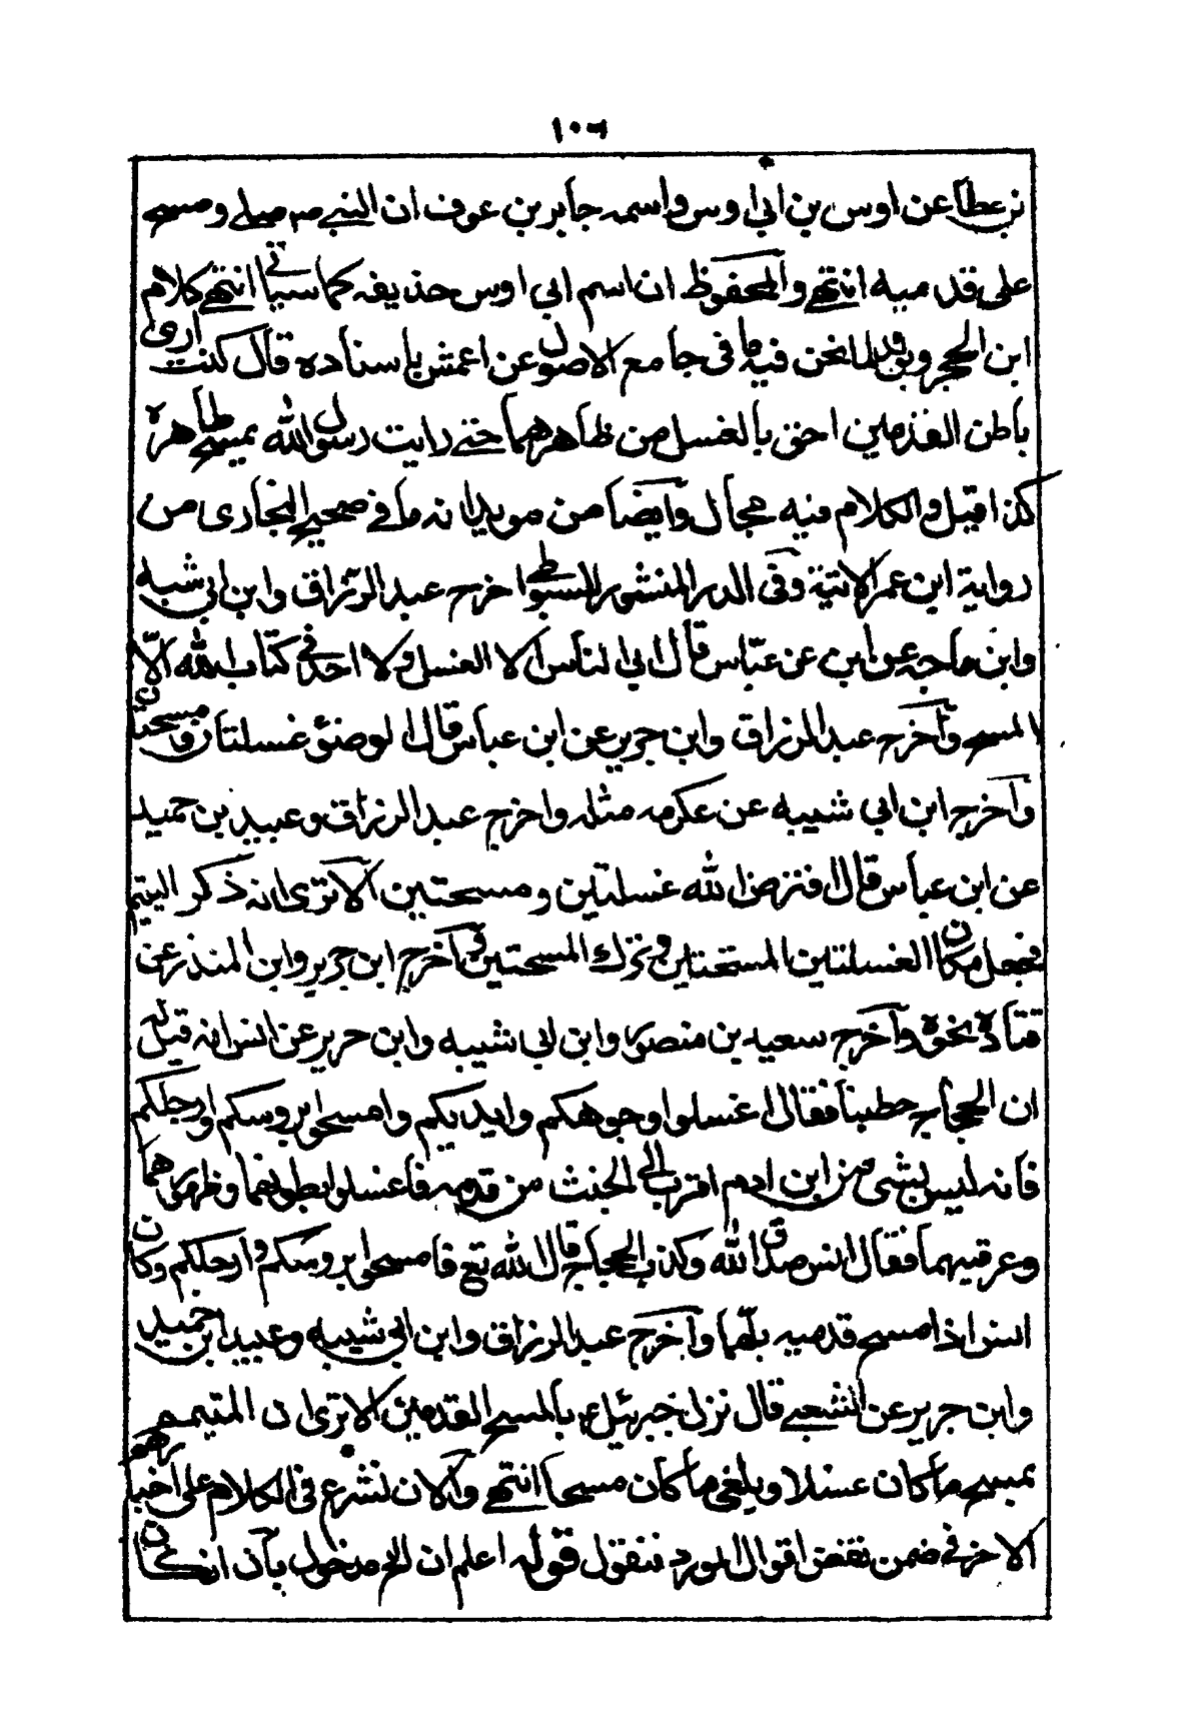 ١٠٦
بن عطا عن اوس بن ابي اوس واسمه جابر بن عوف ان النبي صم صلى ومسح
على قدميه انتهى والمحفوظ ان اسم ابي اوس حذيفه كما سياتي انتهى كلام
ابن الحجر ويويد لما نحن فيه ما فى جامع الاصول عن اعمش باسناده قال كنت ارى
باطن القدمين احق بالغسل من ظاهرهما حتى رايت رسول الله يمسح ظاهره
كذا قيل والكلام فيه مجال وايضا من مويدانه ما في صحيح البخارى من
رواية ابن عمر الاتية وفى الدر المنثور للسيوطي اخرج عبد الرزاق وابن ابي شبه
وابن ماجه عن ابن عن عباس قال ابى الناس الا الغسل ولا اجد في كتاب الله الا
المسح وآخرج عبد الرزاق وابن جرير عن ابن عباس قال الوضؤ غسلتان ومسحتان
وآخرج ابن ابي شيبه عن عكرمه مثله واخرج عبد الرزاق وعبيد بن حميد
عن ابن عباس قال افترض الله غسلتين ومسحتين الا ترى انه ذكر التيمم
فجعل مكان الغسلتين المسحتين وترك المسحتين وآخرج ابن جرير وابن المنذر عن
قتاده نحوه وآخرج سعيد بن منصور وابن ابي شيبه وابن جرير عن انس انه قيل له
ان الحجاج خطبنا فقال اغسلوا وجوهكم وايديكم وامسحوا بروسكم وارجلكم
فانه ليس بشى من ابن ادم اقرب الى الخبث من قدميه فاغسلوا بطونهما وظهورهما
وعرقيبهما فقال انس صدق الله وكذب الحجاج قال الله تع فامسحوا بروسكم وارجلكم وكان
انس اذا مسح قدميه بلهما وآخرج عبد الرزاق وابن ابي شيبه وعبيد ابن حميد
وابن جرير عن الشعبي قال نزل جبرئيل ع بالمسح القدمين الا ترى ان المتيمم
يمسح ما كان غسلا ويلغى ما كان مسحا انتهى وآلان نشرع فى الكلام على اخبارهم
الاخر في ضمن نقض اقوال المورد فنقول قوله اعلم ان الخ مدخول بان انكان